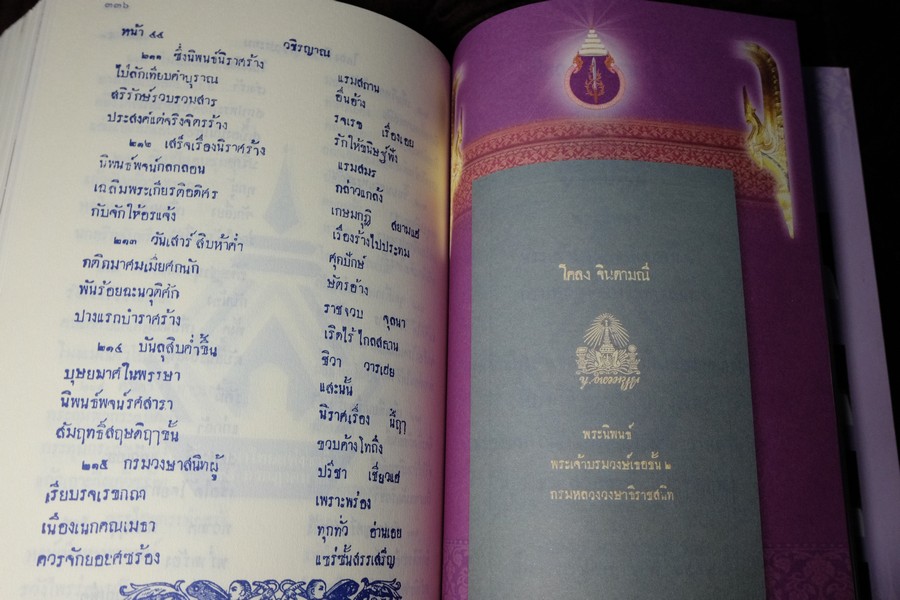 ๓๓๖
หน้า ๔๔ วชิรญาณ
๒๑๑ ซึ่งนิพนธ์นิราศร้าง แรมสถาน
ไป่ลักเทียบคำบุราณ อื่นอ้าง
สริรักษ์รวบรวมสาร รจเรข เรื่องเอย
ประสงค์แต่จริงจิตรร้าง รักให้ขนิษฐ์ฟัง
๒๑๒ เสร็จเรื่องนิราศร้าง แรมสมร
นิพนธ์พจน์กลกลอน กล่าวแกล้ง
เฉลิมพระเกียรติอดิศร เกษมกุฎิ สยามแฮ
กับจักให้อรแจ้ง เรื่องร้างไปประทม
๒๑๓ วันเสาร์ สิบห้าค่ำ ศุกปักษ์
กติกมาศมเมียศกนัก ษัตรอ้าง
พันร้อยฉะนวุติศัก ราชจวบ จุลนา
ปางแรกบำราศร้าง เริดไร้ไกลสถาน
๒๑๔ บันลุสิบค่ำขึ้น ชิวา วารเฮย
บุษยมาศในพรรษา และนั้น
นิพนธ์พจน์รศสารา นิราศเรื่อง นี้ฤๅ
สัมฤทธิ์สฤษดิฤๅชั้น ขวบค้างโทถึง
๒๑๕ กรมวงษาสนิทผู้ ปรีชา เชี่ยวแฮ
เรียบรจเรขกถา เพราะพร่อง
เนืองเนกคณเมธา ทุกทั่ว อ่านเอย
ควรจักยอยศซร้อง แซร่ซั้นสรรเสริญ
โคลง จินดามณี
พระนิพนธ์
พระเจ้าบรมวงษ์เธอชั้น ๒
กรมหลวงวงษาธิราชสนิต